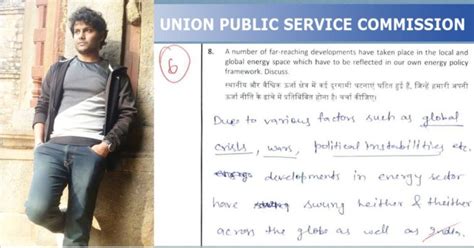 UNION PUBLIC SERVICE COMMISSION
6
8. A number of far-reaching developments have taken place in the local and
global energy space which have to be reflected in our own energy policy
framework. Discuss.
स्थानीय और वैश्विक ऊर्जा क्षेत्र में कई दूरगामी घटनाएं घटित हुई हैं, जिन्हें हमारी अपनी
ऊर्जा नीति के ढांचे में प्रतिबिंबित होना है। चर्चा कीजिए।
Due to various factors such as global
crisis, wars, political instabilities etc.
developments in energy sector
have swung heither & theither
across the globe as well as India.